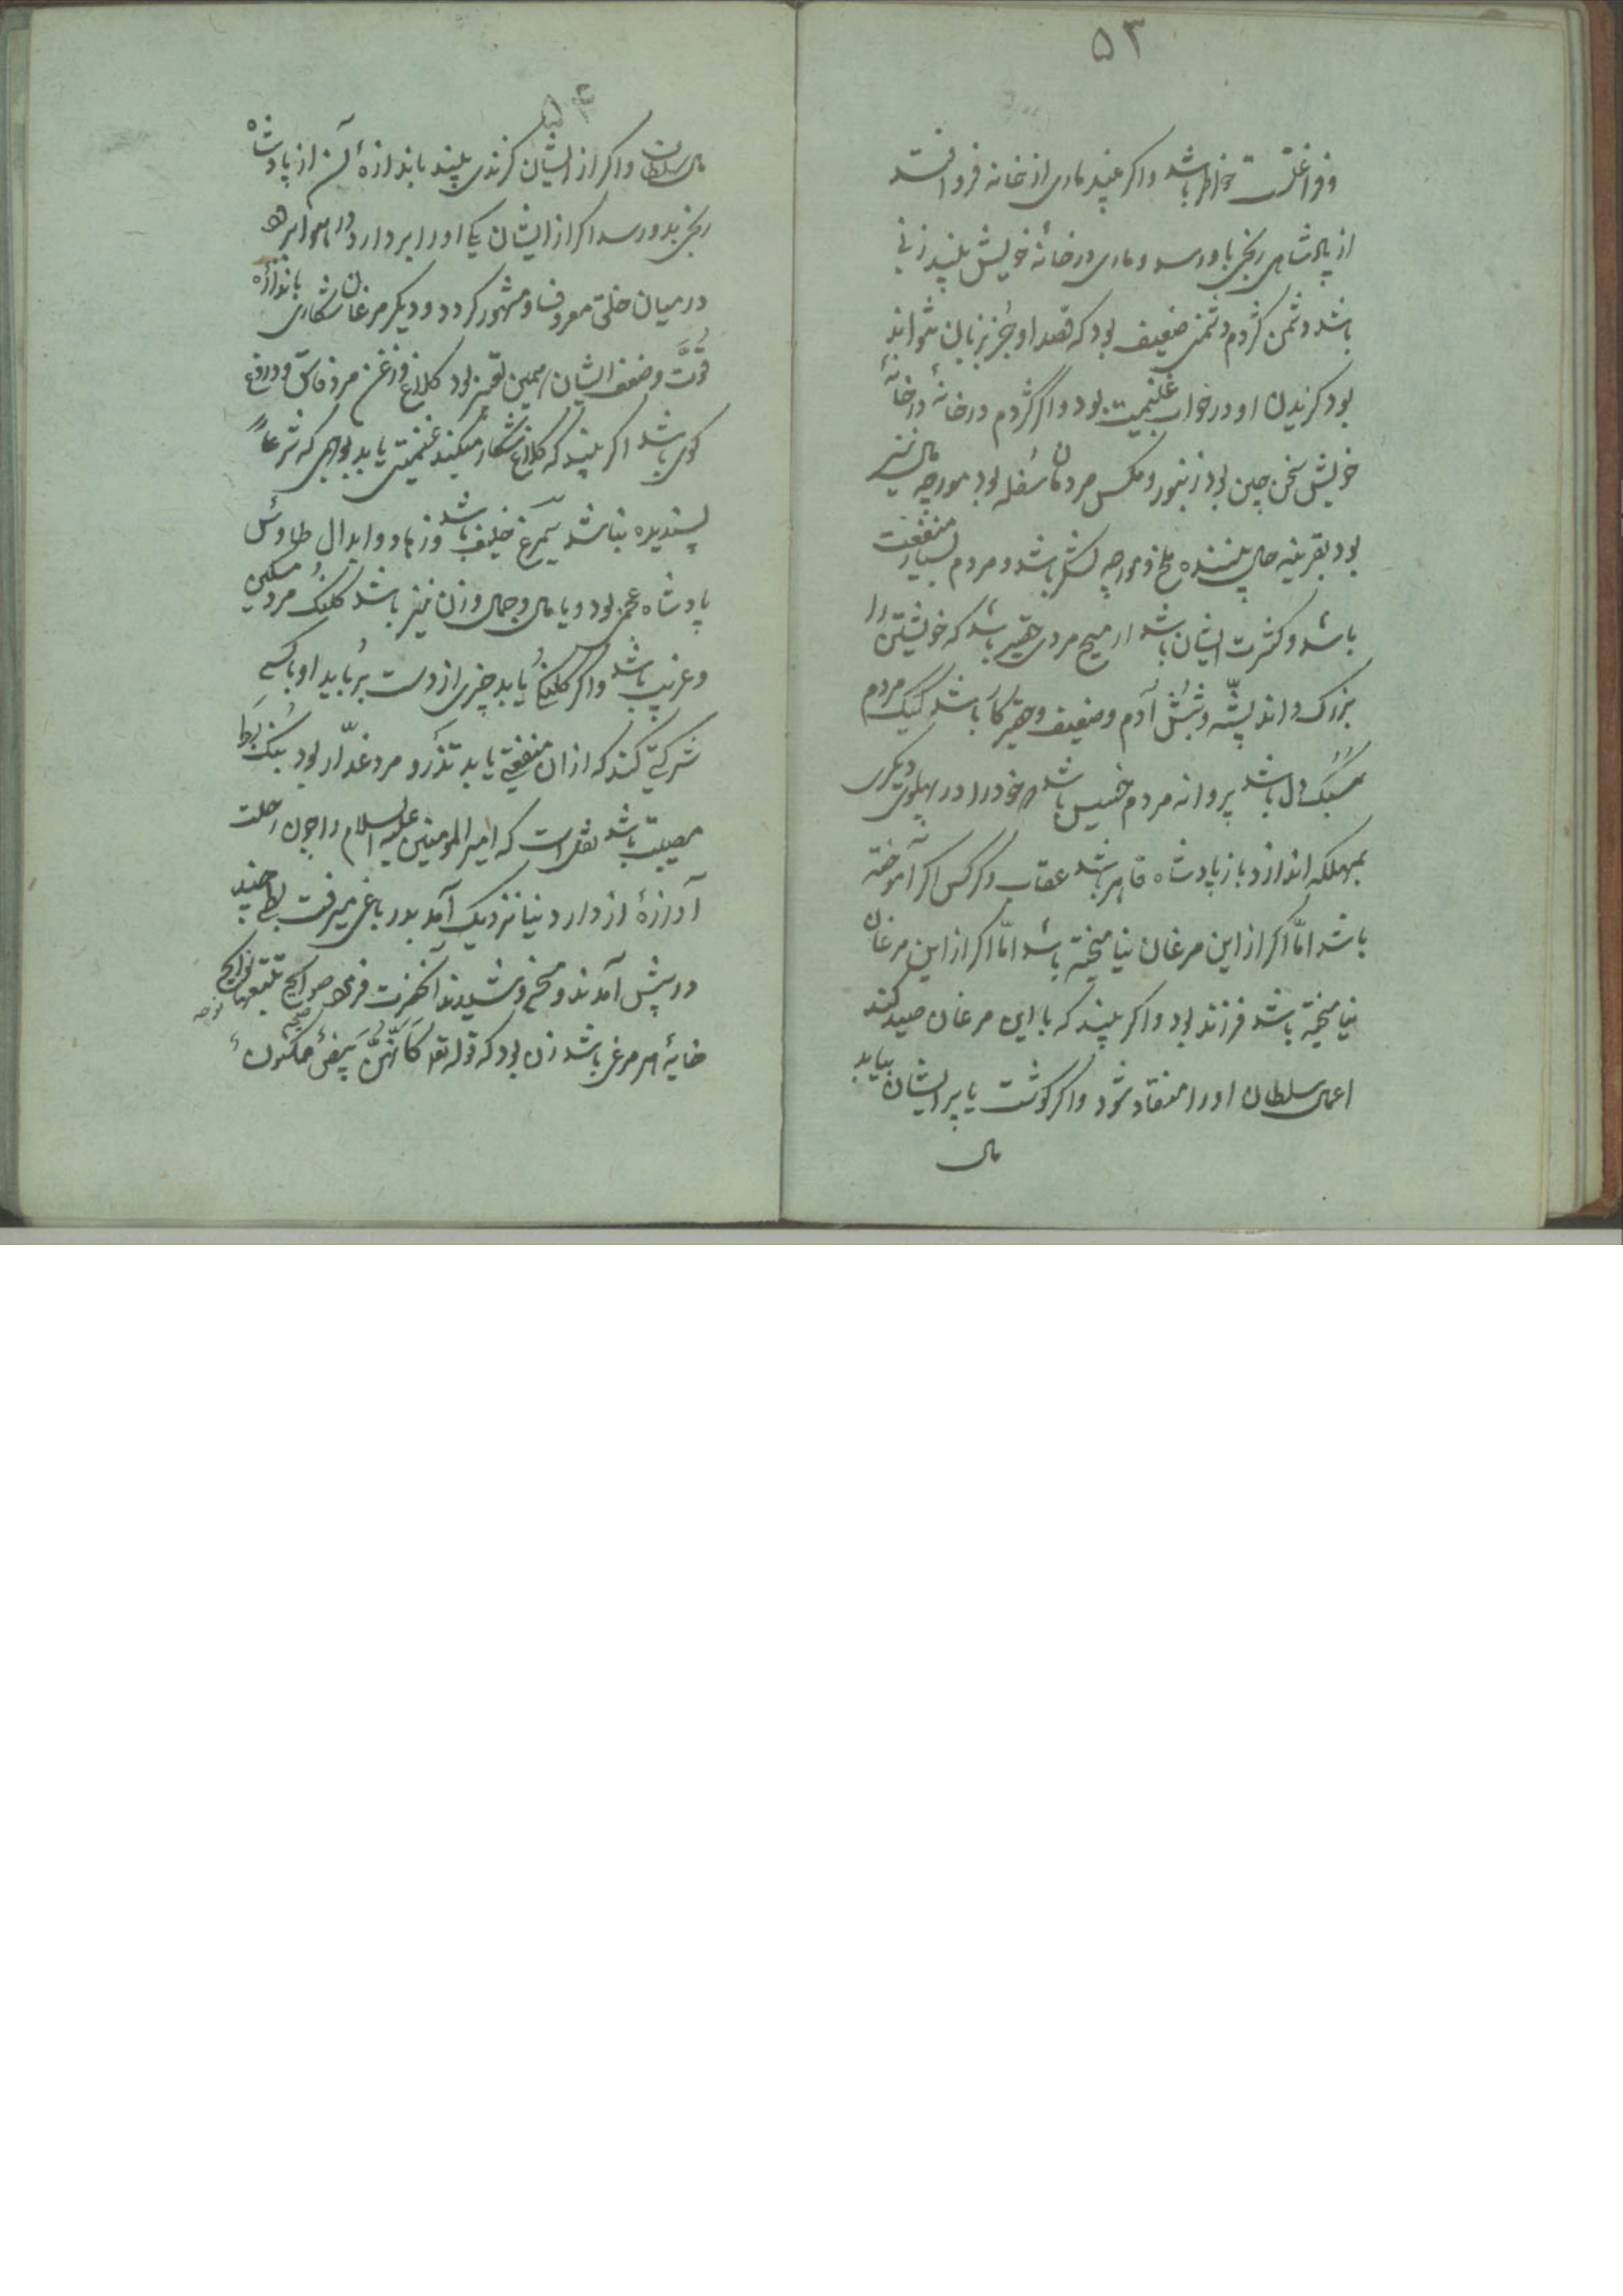 ۵۳
و فراغت خاطر باشد و اگر بیند ماری از خانه فرو افتد
از پادشاهی رنجی باو رسد و ماری در خانهٔ خویش بیند زنی
باشد دشمن کژدم دشمنی ضعیف بود که قصد او جز بزبان نتواند
بود گزیدن او در خواب غنیمت بود و اگر کژدم در خانهٔ
خویش سخن چین بود زنبور و مگس مردمان سفله بود مورچه مال نیز
بود بقرینه حال بیننده ملخ و مورچه لشکر باشد و مردم بسیار منفعت
باشد و کثرت ایشان باشد مردی حقیر باشد که خویشتن را
بزرگ داند پشّه و شپش آدم و ضعیف و حقیر کار باشد کیک مردم
سبک دل باشد پروانه مردم خسیس باشد خود را در پهلوی دیگری
بمهلکه اندازد باز پادشاه قاهر باشد عقاب و کرکس اگر آموخته
باشد امّا اگر از این مرغان نیامیخته باشد امّا اگر از این مرغان
نیامیخته باشد فرزند بود و اگر بیند که با این مرغان صید کند
اعمال سلطان او را منقاد شود و اگر گوشت یا پر ایشان بیابد
مال
۵۴
مال سلطان و اگر از ایشان گزندی بیند باندازهٔ آن از پادشاه
رنجی بدو رسد اگر از ایشان یکی او را بردارد و در هوا برد
در میان خلق معروف و مشهور گردد و دیگر مرغان شکاری باندازه
قوّت و ضعف ایشان همین تعبیر بود کلاغ و زغن مرد فاسق و دروغ
گوی باشد اگر بیند که کلاغ شکار میکند غنیمتی یابد بوجهی که شرعاً
پسندیده نباشد سیمرغ خلیفه باشد و زهاد و ابدال طاوس
پادشاه عجم بود و یا مال و جمال و زن نیز باشد کلنگ مرد مسکین
و غریب باشد و اگر کلنگی یابد چیزی از دست برباید او با کسی
شرکتی کند که از ان منفعتی یابد تذرو مرد غدّار بود بط
مصیبت باشد نقل است که امیر المومنین علیه السلام را چون رحلت
آوازهٔ از دار دنیا نزدیک آمد بدر باغی میرفت بطی چند
در پیش آمدند و میخروشیدند آنحضرت فرمود صوایح تتبعها نوایح
خایهٔ هر مرغی باشد زن بود که قوله تعالی کَاَنَّهُنَّ بَیضٌ مکنون